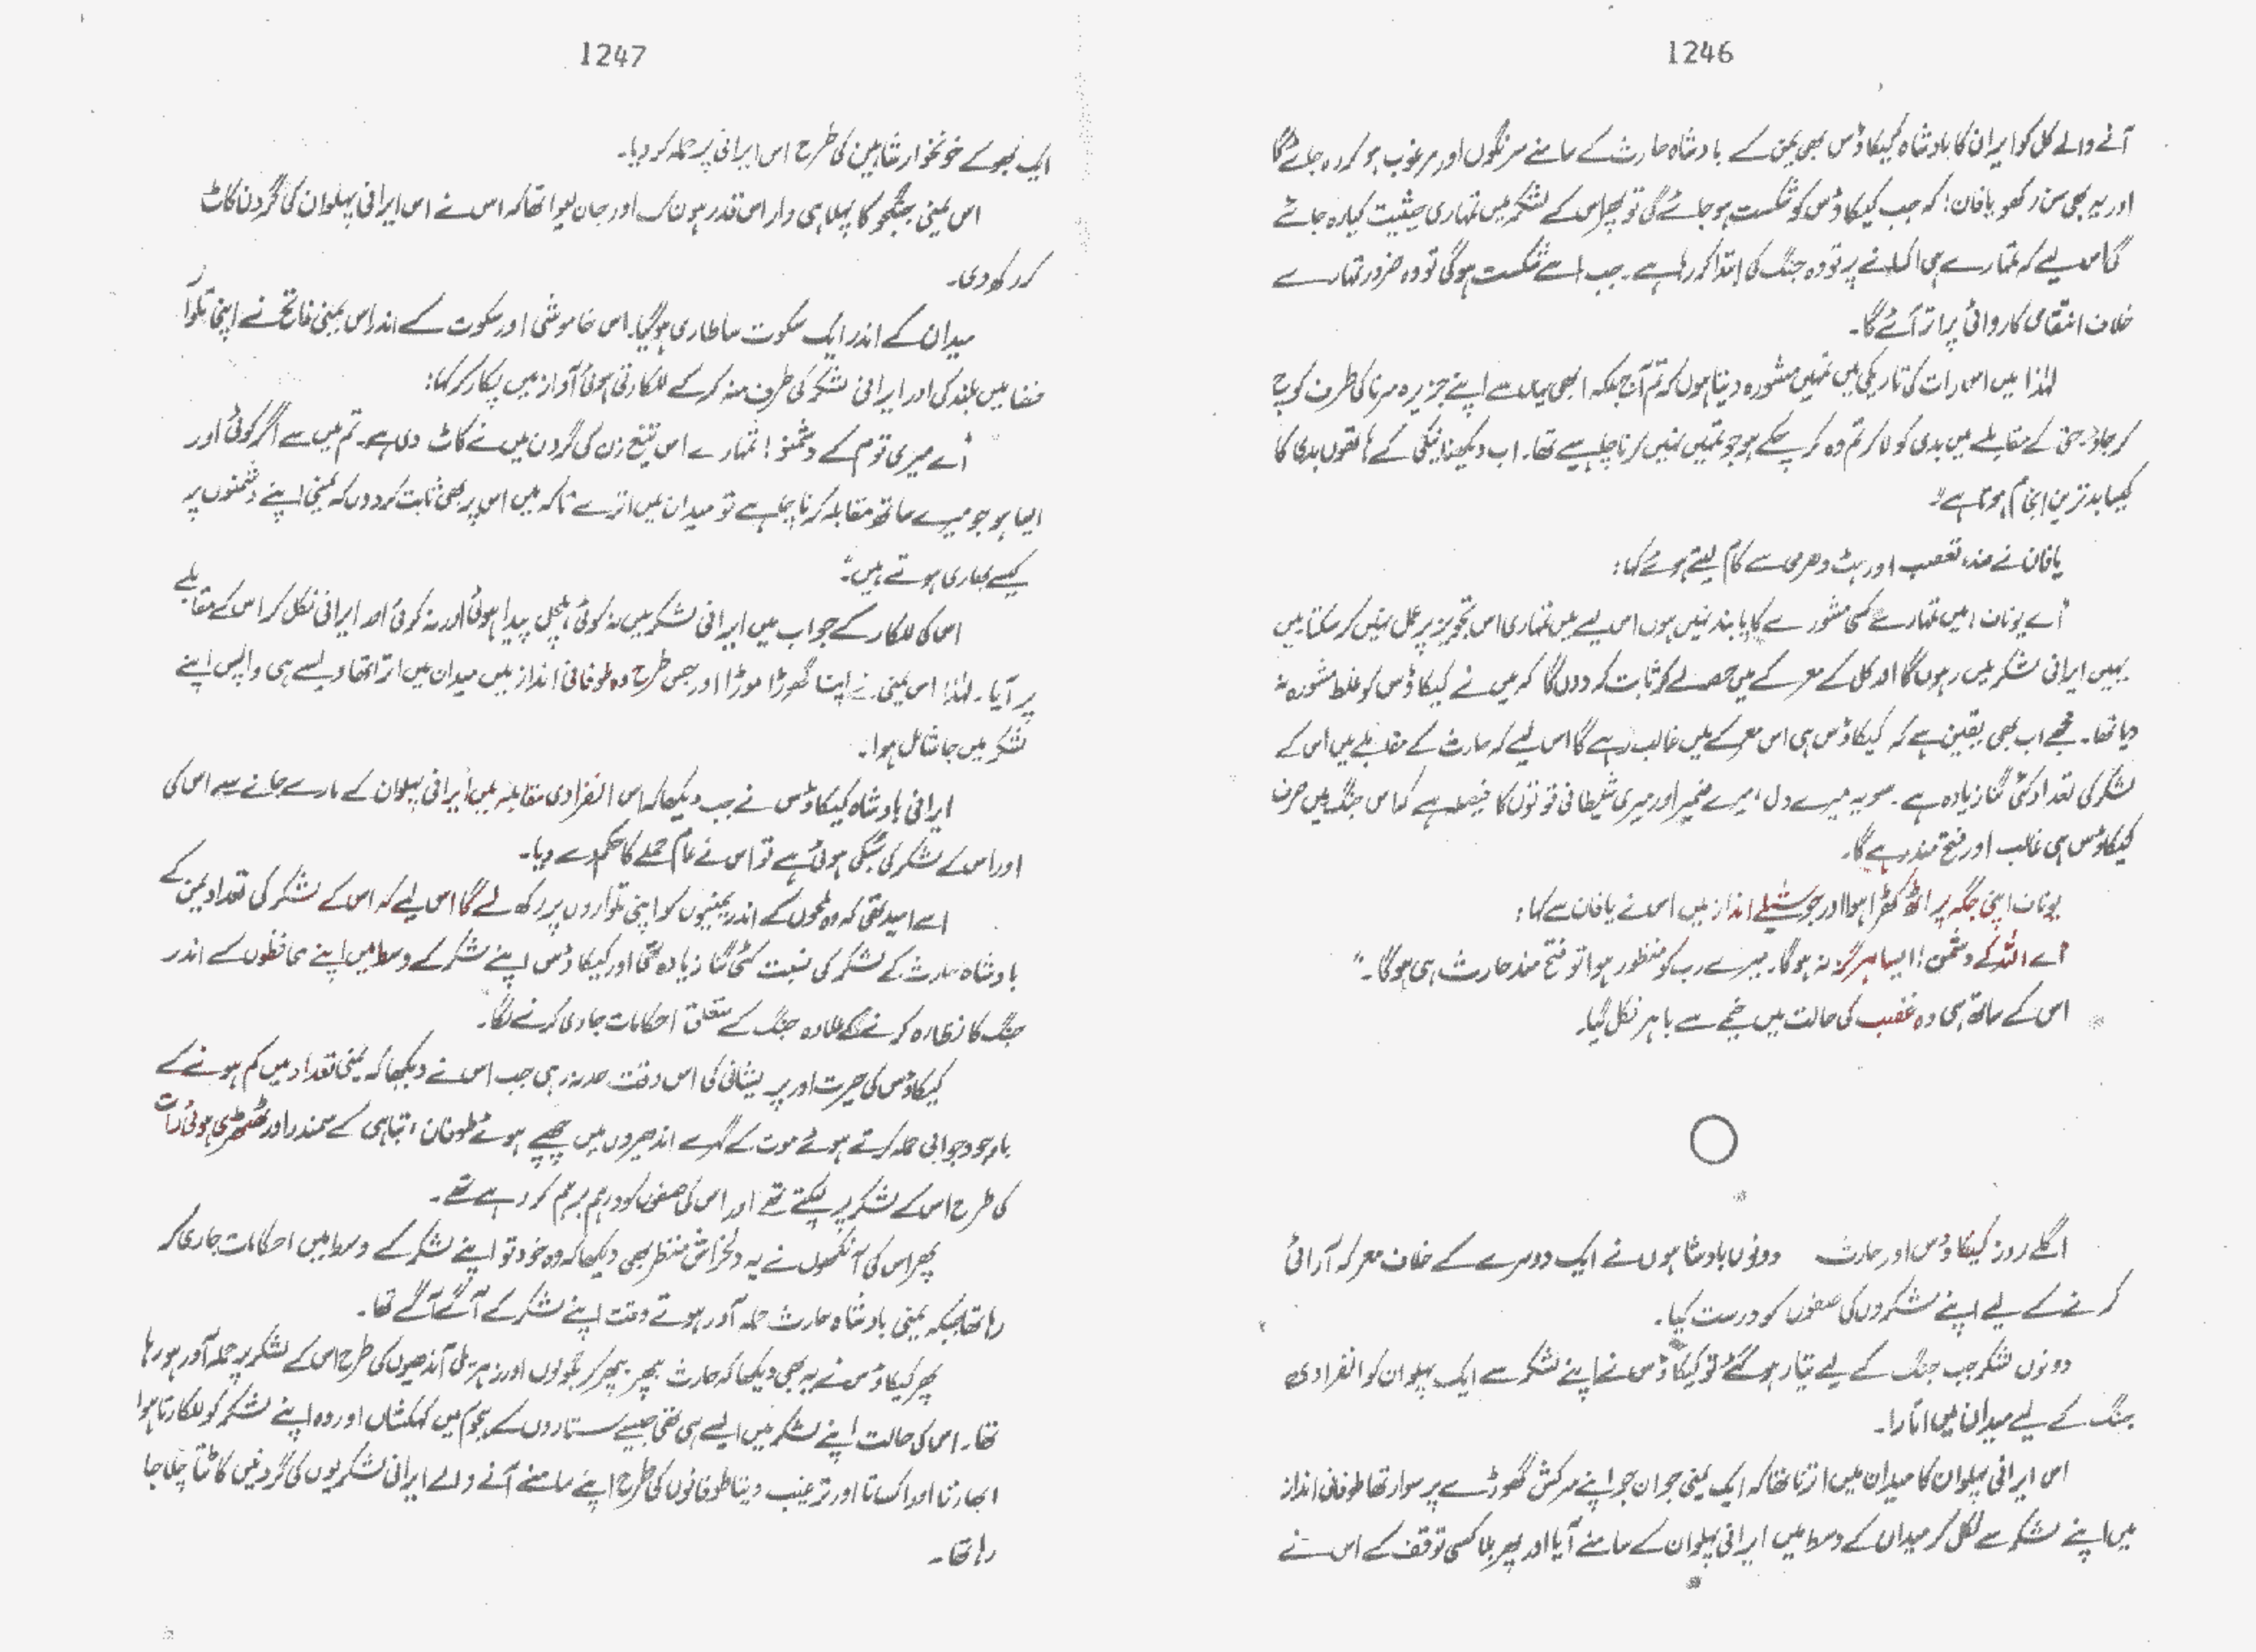 1246
آنے والے کل کو ایران کا بادشاہ کیکاؤس بھی یمن کے بادشاہ حارث کے سامنے سرنگوں اور مرغوب ہو کر رہ جائے گا
اور یہ بھی سن رکھو یافان! کہ جب کیکاؤس کو شکست ہو جائے گی تو پھر اس کے لشکر میں تمہاری حیثیت کیا رہ جائے
گی اس لیے کہ تمہارے ہی اکسانے پر تو وہ جنگ کی ابتدا کر رہا ہے۔ جب اسے شکست ہو گی تو وہ ضرور تمہارے
خلاف انتقامی کاروائی پر اتر آئے گا۔
لہٰذا میں اس رات کی تاریکی میں تمہیں مشورہ دیتا ہوں کہ تم آج بلکہ ابھی یہاں سے اپنے جزیرہ سرنا کی طرف کوچ
کر جاؤ۔ حق کے مقابلے میں بدی کو لا کر تم وہ کر چکے ہو جو تمہیں نہیں کرنا چاہیے تھا۔ اب دیکھنا نیکی کے ہاتھوں بدی کا
کیسا بدترین انجام ہوتا ہے"
یافان نے ضد، تعصب اور ہٹ دھرمی سے کام لیتے ہوئے کہا:
"اے یوناف! میں تمہارے کسی مشورے کا پابند نہیں ہوں اس لیے میں تمہاری اس تجویز پر عمل نہیں کر سکتا میں
یہیں ایرانی لشکر میں رہوں گا اور کل کے معرکے میں حصہ لے کر ثابت کر دوں گا کہ میں نے کیکاؤس کو غلط مشورہ نہ
دیا تھا۔ مجھے اب بھی یقین ہے کہ کیکاؤس ہی اس معرکے میں غالب رہے گا اس لیے کہ حارث کے مقابلے میں اس کے
لشکر کی تعداد کئی گنا زیادہ ہے۔ سو یہ میرے دل، میرے ضمیر اور میری شیطانی قوتوں کا فیصلہ ہے کہ اس جنگ میں صرف
کیکاؤس ہی غالب اور فتح مند رہے گا۔
یوناف اپنی جگہ پر اٹھ کھڑا ہوا اور جوشیلے انداز میں اس نے یافان سے کہا:
"اے اللہ کے دشمن! ایسا ہرگز نہ ہوگا۔ میرے رب کو منظور ہوا تو فتح مند حارث ہی ہوگا۔"
اس کے ساتھ ہی وہ غضب کی حالت میں خیمے سے باہر نکل گیا۔
اگلے روز کیکاؤس اور حارث دونوں بادشاہوں نے ایک دوسرے کے خلاف معرکہ آرائی
کرنے کے لیے اپنے لشکروں کی صفوں کو درست کیا۔
دونوں لشکر جب جنگ کے لیے تیار ہو گئے تو کیکاؤس نے اپنے لشکر سے ایک پہلوان کو انفرادی
جنگ کے لیے میدان میں اتارا۔
اس ایرانی پہلوان کا میدان میں اترنا تھا کہ ایک یمنی جوان جو اپنے سرکش گھوڑے پر سوار تھا طوفانی انداز
میں اپنے لشکر سے نکل کر میدان کے وسط میں ایرانی پہلوان کے سامنے آیا اور پھر بلا کسی توقف کے اس نے
1247
ایک بھوکے خونخوار شاہین کی طرح اس ایرانی پر حملہ کر دیا۔
اس یمنی جنگجو کا پہلا ہی وار اس قدر ہولناک اور جان لیوا تھا کہ اس نے اس ایرانی پہلوان کی گردن کاٹ
کر رکھ دی۔
میدان کے اندر ایک سکوت سا طاری ہو گیا۔ اس خاموشی اور سکوت کے اندر اس یمنی فاتح نے اپنی تلوار
فضا میں بلند کی اور ایرانی لشکر کی طرف منہ کر کے للکارتی ہوئی آواز میں پکار کر کہا:
"اے میری قوم کے دشمنو! تمہارے اس تیغ زن کی گردن میں نے کاٹ دی ہے۔ تم میں سے اگر کوئی اور
ایسا ہو جو میرے ساتھ مقابلہ کرنا چاہے تو میدان میں اترے تاکہ میں اس پر بھی ثابت کر دوں کہ یمنی اپنے دشمنوں پر
کیسے بھاری ہوتے ہیں"۔
اس کی للکار کے جواب میں ایرانی لشکر میں نہ کوئی ہلچل پیدا ہوئی اور نہ کوئی اور ایرانی نکل کر اس کے مقابلے
پر آیا۔ لہٰذا اس یمنی نے اپنا گھوڑا موڑا اور جس طرح وہ طوفانی انداز میں میدان میں اترا تھا ویسے ہی واپس اپنے
لشکر میں جا شامل ہوا۔
ایرانی بادشاہ کیکاؤس نے جب دیکھا کہ اس انفرادی مقابلہ میں ایرانی پہلوان کے مارے جانے سے اس کی
اور اس کے لشکر کی سبکی ہوئی ہے تو اس نے عام حملے کا حکم دے دیا۔
اسے امید تھی کہ وہ لمحوں کے اندر یمنیوں کو اپنی تلواروں پر رکھ لے گا اس لیے کہ اس کے لشکر کی تعداد یمن کے
بادشاہ حارث کے لشکر کی نسبت کئی گنا زیادہ تھی اور کیکاؤس اپنے لشکر کے وسط میں اپنے محافظوں کے اندر
جنگ کا نظارہ کرنے کے علاوہ جنگ کے متعلق احکامات جاری کرنے لگا۔
کیکاؤس کی حیرت اور پریشانی کی اس وقت حد نہ رہی جب اس نے دیکھا کہ یمنی تعداد میں کم ہونے کے
باوجود جوابی حملہ کرتے ہوئے موت کے گہرے اندھیروں میں چھپے ہوئے طوفان، تباہی کے سمندر اور ٹھٹھرتی ہوئی رات
کی طرح اس کے لشکر پر لپکتے تھے اور اس کی صفوں کو درہم برہم کر رہے تھے۔
پھر اس کی آنکھوں نے یہ دلخراش منظر بھی دیکھا کہ وہ خود تو اپنے لشکر کے وسط میں احکامات جاری کر
رہا تھا جبکہ یمنی بادشاہ حارث حملہ آور ہوتے وقت اپنے لشکر کے آگے آگے تھا۔
پھر کیکاؤس نے یہ بھی دیکھا کہ حارث بپھر بپھر کر بگولوں اور زہریلی آندھیوں کی طرح اس کے لشکر پر حملہ آور ہو رہا
تھا۔ اس کی حالت اپنے لشکر میں ایسے ہی تھی جیسے ستاروں کے ہجوم میں کہکشاں اور وہ اپنے لشکر کو للکارتا ہوا
ابھارتا اور اکساتا اور ترغیب دیتا طوفانوں کی طرح اپنے سامنے آنے والے ایرانی لشکریوں کی گردنیں کاٹتا چلا جا
رہا تھا۔